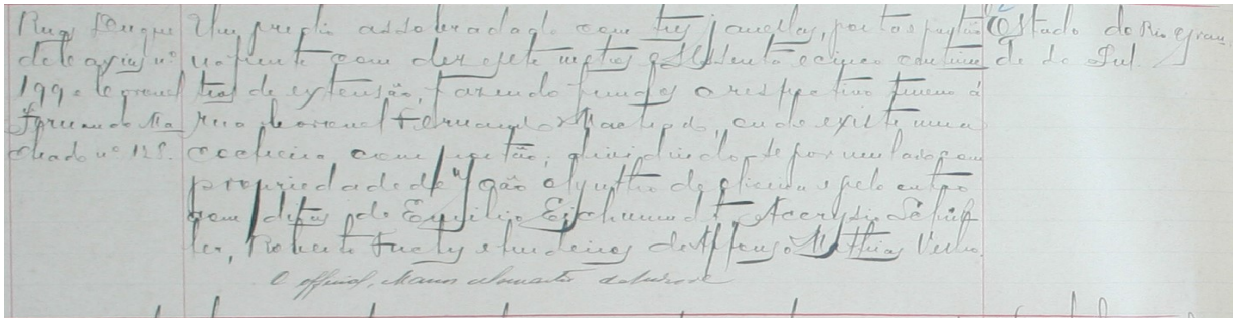 Rua Duque
de Caxias nº
199 e Coronel
Fernando Ma
chado nº 128.
Um predio assobradado com tres janellas, porta e portão
na frente com dez e sete metros e sessenta e cinco centime
tros de extensão, fazendo fundos o respectivo terreno á
rua Coronel Fernando Machado, onde existe uma
cocheira com portão, dividindo-se por um lado com
propriedade de João de oliveira e pelo outro
com ditas de Emilio Acrysio Schef
ler, Roberto e herdeiros de Affonso Mathias Velho.
O official,
Estado do Rio Gran
de do Sul.